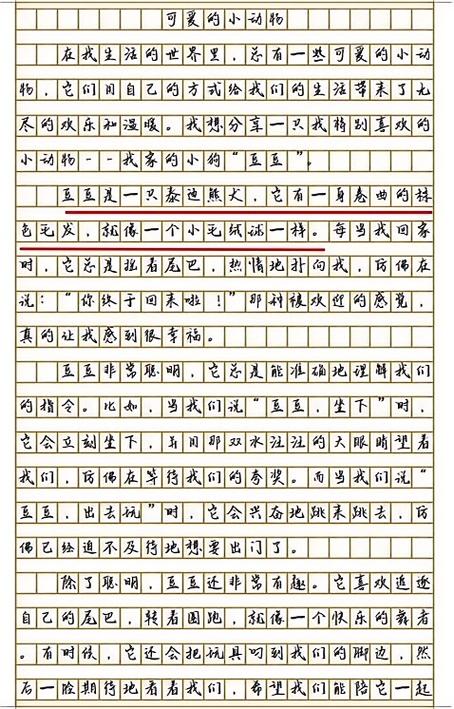 可爱的小动物
在我生活的世界里，总有一些可爱的小动
物，它们用自己的方式给我们的生活带来了无
尽的欢乐和温暖。我想分享一只我特别喜欢的
小动物--我家的小狗“豆豆”。
豆豆是一只泰迪熊犬，它有一身卷曲的棕
色毛发，就像一个小毛绒球一样。每当我回家
时，它总是摇着尾巴，热情地扑向我，仿佛在
说：“你终于回来啦！”那种被欢迎的感觉，
真的让我感到很幸福。
豆豆非常聪明，它总是能准确地理解我们
的指令。比如，当我们说“豆豆，坐下”时，
它会立刻坐下，并用那双水汪汪的大眼睛望着
我们，仿佛在等待我们的夸奖。而当我们说“
豆豆，出去玩”时，它会兴奋地跳来跳去，仿
佛已经迫不及待地想要出门了。
除了聪明，豆豆还非常有趣。它喜欢追逐
自己的尾巴，转着圈跑，就像一个快乐的舞者
。有时候，它还会把玩具叼到我们的脚边，然
后一脸期待地看着我们，希望我们能陪它一起